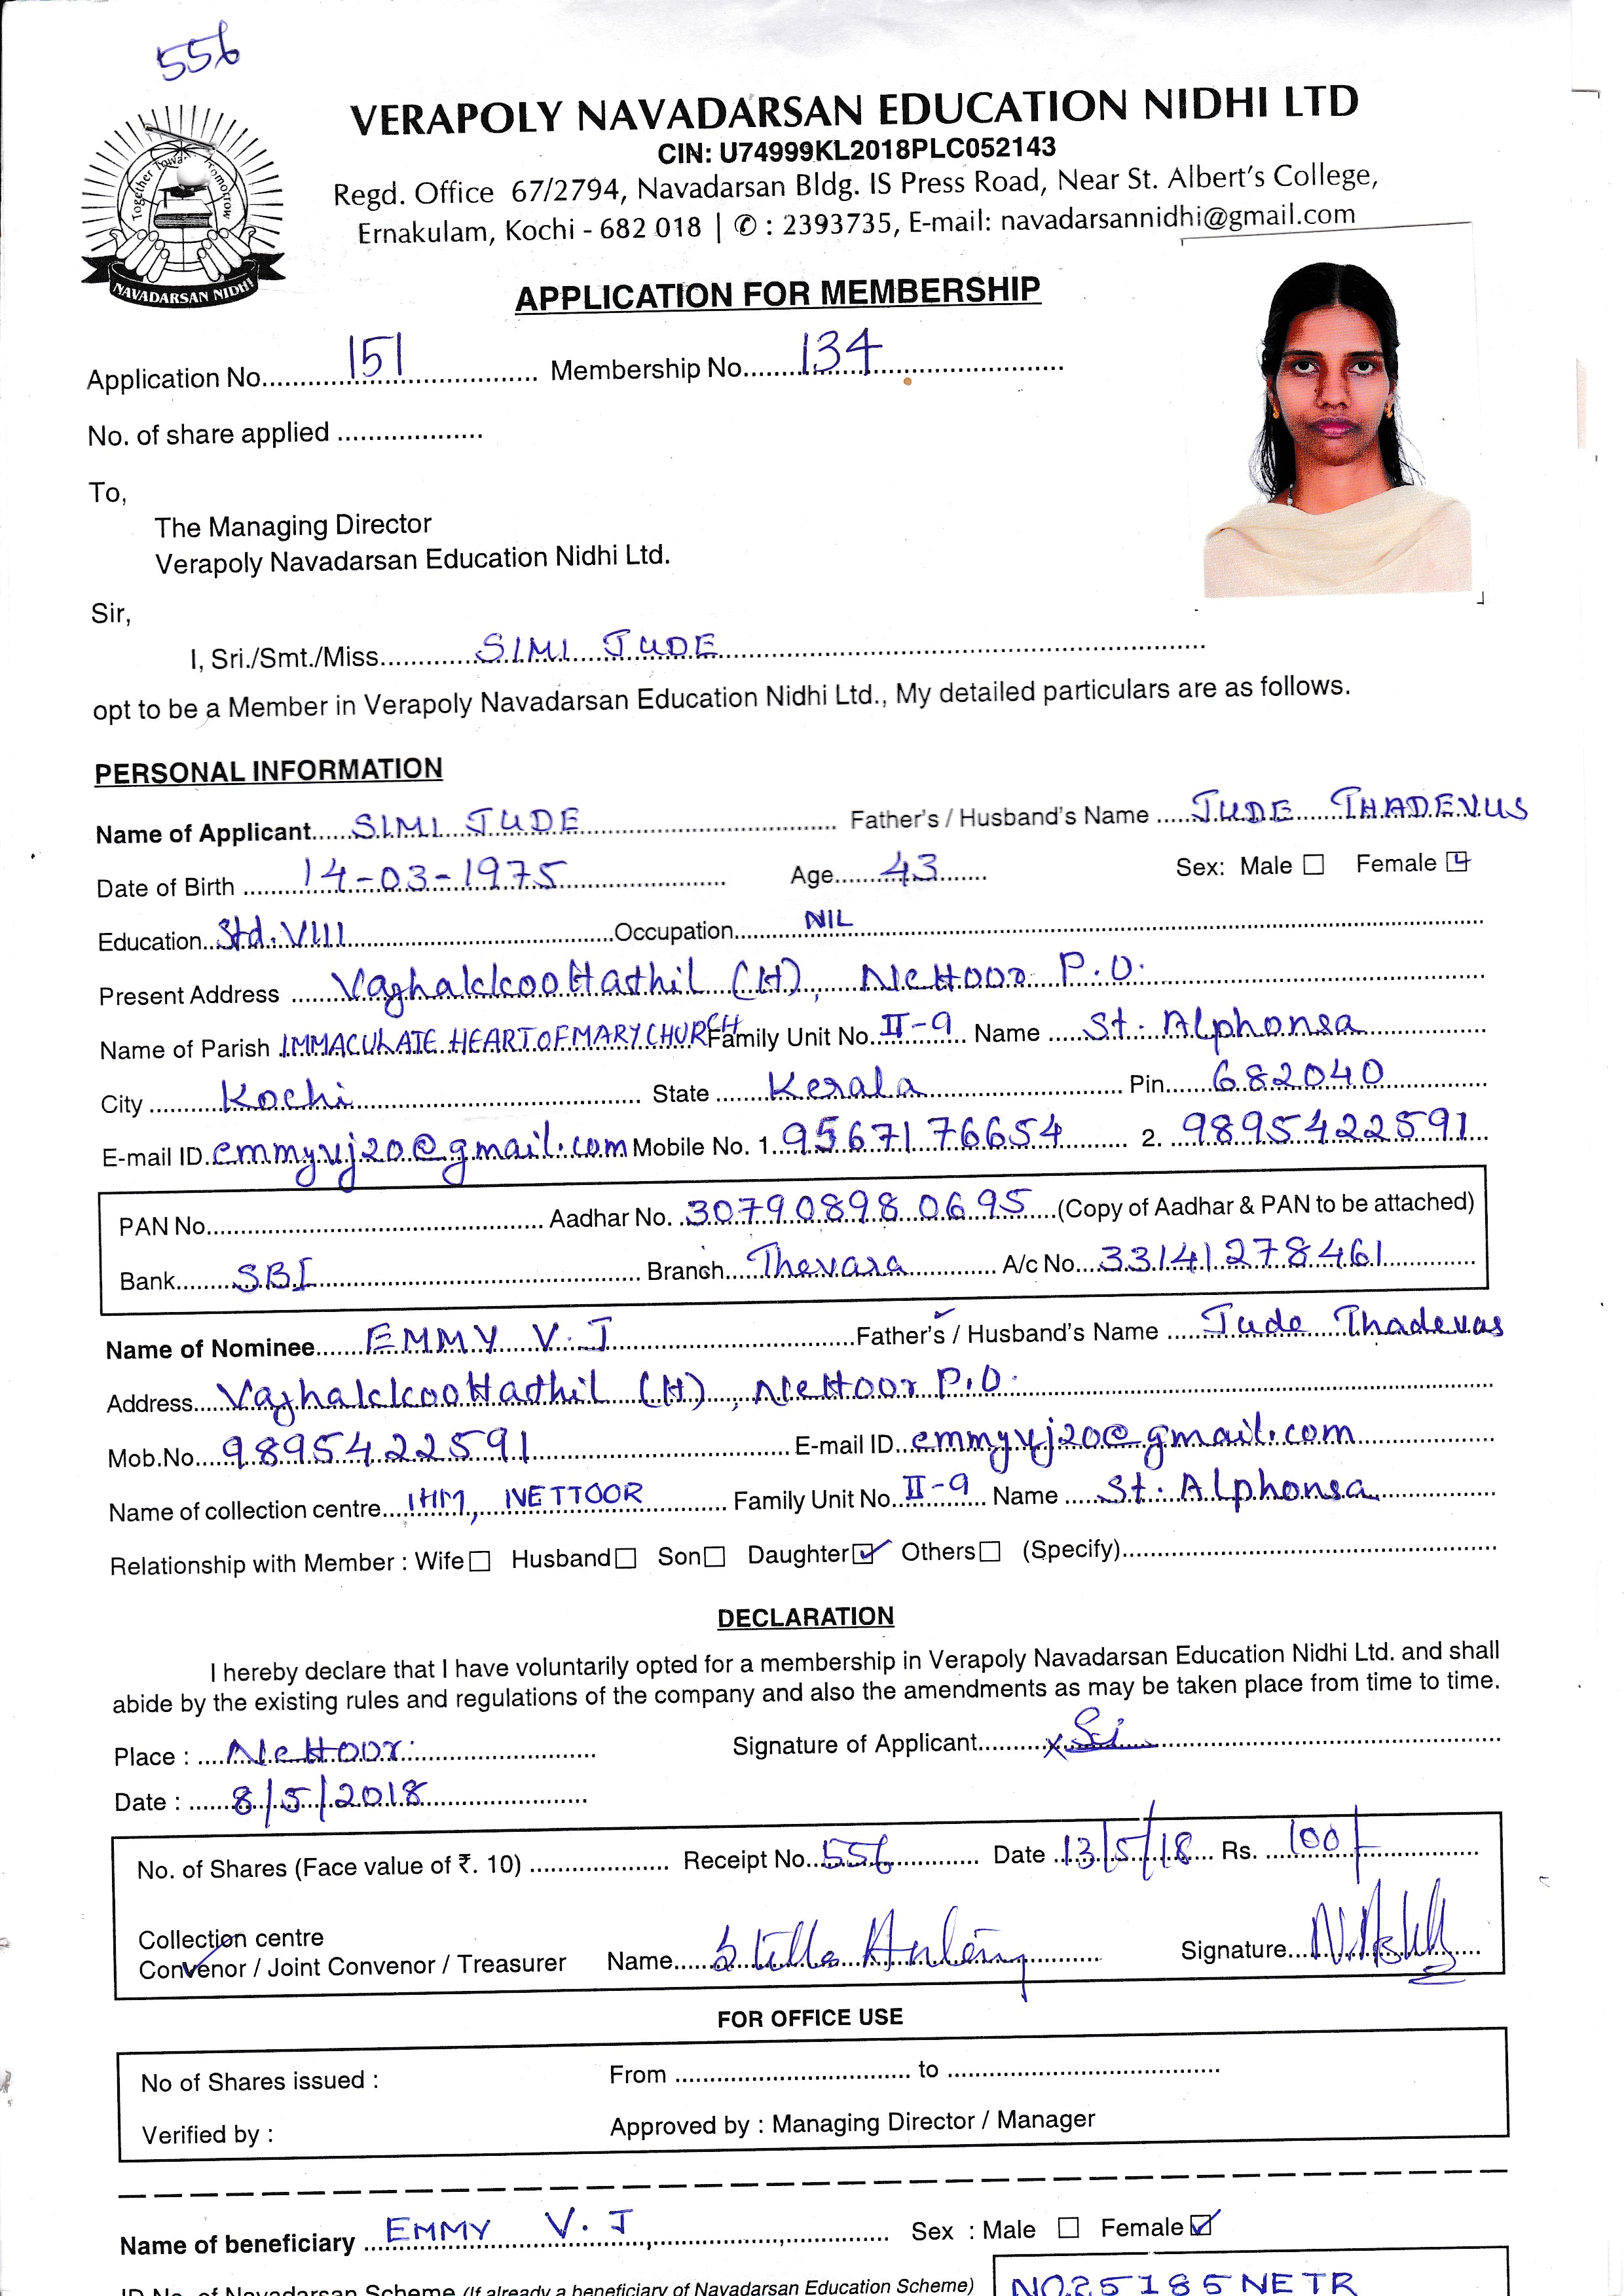 556
VERAPOLY NAVADARSAN EDUCATION NIDHI LTD
CIN: U74999KL2018PLC052143
Regd. Office 67/2794, Navadarsan Bldg. IS Press Road, Near St. Albert's College,
Ernakulam, Kochi - 682 018 | ✆ : 2393735, E-mail: navadarsannidhi@gmail.com
Together Towards Tomorrow
NAVADARSAN NIDHI
APPLICATION FOR MEMBERSHIP
Application No. 151 Membership No. 134
No. of share applied
To,
The Managing Director
Verapoly Navadarsan Education Nidhi Ltd.
Sir,
I, Sri./Smt./Miss. SIMI JUDE
opt to be a Member in Verapoly Navadarsan Education Nidhi Ltd., My detailed particulars are as follows.
PERSONAL INFORMATION
Name of Applicant SIMI JUDE Father's / Husband's Name JUDE THADEVUS
Date of Birth 14-03-1975 Age 43 Sex: Male ☐ Female ☑
Education Std. VIII Occupation NIL
Present Address Vazhakkoottathil (H), Nettoor P.O.
Name of Parish IMMACULATE HEART OF MARY CHURCH Family Unit No. II-9 Name St. Alphonsa
City Kochi State Kerala Pin 682040
E-mail ID. emmyvj20@gmail.com Mobile No. 1. 9567176654 2. 9895422591
PAN No. Aadhar No. 307908980695 (Copy of Aadhar & PAN to be attached)
Bank SBI Branch Thevara A/c No. 33141278461
Name of Nominee EMMY V. J Father's / Husband's Name Jude Thadevas
Address Vazhakkoottathil (H), Nettoor P.O.
Mob.No. 9895422591 E-mail ID. emmyvj20@gmail.com
Name of collection centre IHM, NETTOOR Family Unit No. II-9 Name St. Alphonsa
Relationship with Member : Wife ☐ Husband ☐ Son ☐ Daughter ☑ Others ☐ (Specify)
DECLARATION
I hereby declare that I have voluntarily opted for a membership in Verapoly Navadarsan Education Nidhi Ltd. and shall
abide by the existing rules and regulations of the company and also the amendments as may be taken place from time to time.
Place : Nettoor. Signature of Applicant x
Date : 8/5/2018
No. of Shares (Face value of ₹. 10) Receipt No. 556 Date 13/5/18 Rs. 100/-
Collection centre
Convenor / Joint Convenor / Treasurer Name Stella Signature
FOR OFFICE USE
No of Shares issued : From to
Verified by : Approved by : Managing Director / Manager
Name of beneficiary EMMY V. J Sex : Male ☐ Female ☑
ID No. of Navadarsan Scheme (If already a beneficiary of Navadarsan Education Scheme) NO25185NETR